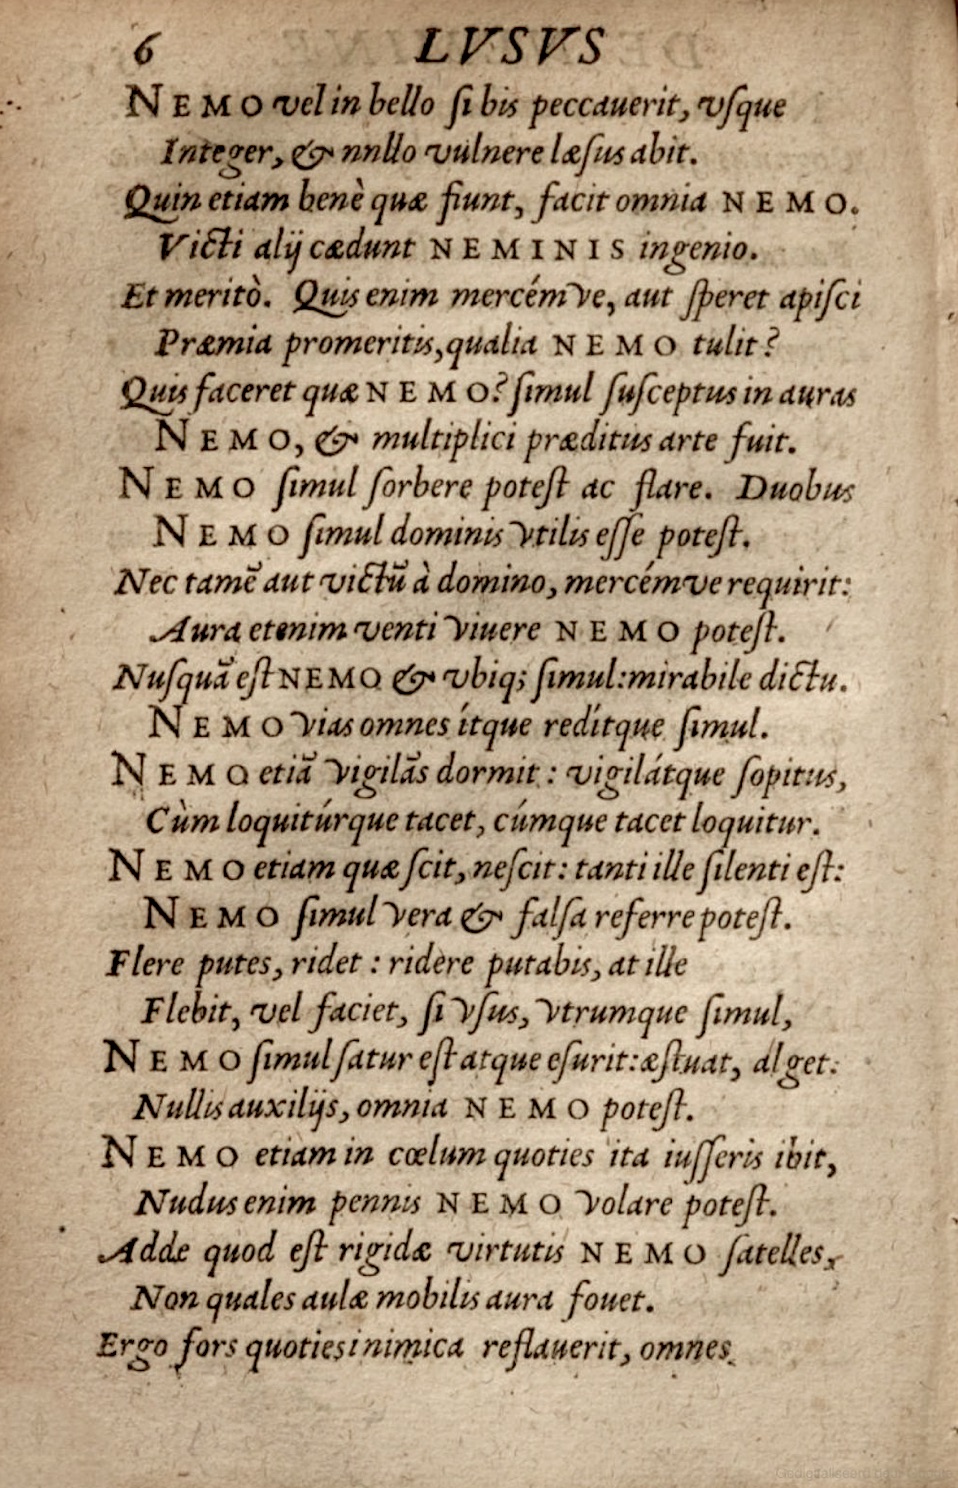 6 LVSVS
NEMO vel in bello ſi bis peccauerit, vſque
Integer, & nnllo vulnere læſus abit.
Quin etiam benè quæ fiunt, facit omnia NEMO.
Victi alij cædunt NEMINIS ingenio.
Et meritò. Quis enim mercémve, aut ſperet apiſci
Præmia promeritis, qualia NEMO tulit?
Quis faceret quæ NEMO? ſimul ſuſceptus in auras
NEMO, & multiplici præditus arte fuit.
NEMO ſimul ſorbere poteſt ac flare. Duobus
NEMO ſimul dominis vtilis eſſe poteſt.
Nec tamẽ aut victũ à domino, mercémve requirit:
Aura etenim venti viuere NEMO poteſt.
Nuſquã eſt NEMO & vbiq; ſimul: mirabile dictu.
NEMO vias omnes ítque redítque ſimul.
NEMO etiã vigilãs dormit: vigilátque ſopitus,
Cùm loquitúrque tacet, cúmque tacet loquitur.
NEMO etiam quæ ſcit, neſcit: tanti ille ſilenti eſt:
NEMO ſimul vera & falſa referre poteſt.
Flere putes, ridet: ridere putabis, at ille
Flebit, vel faciet, ſi vſus, vtrumque ſimul,
NEMO ſimul ſatur eſt atque eſurit: æſtuat, alget.
Nullis auxilijs, omnia NEMO poteſt.
NEMO etiam in cœlum quoties ita iuſſeris ibit,
Nudus enim pennis NEMO volare poteſt.
Adde quod eſt rigidæ virtutis NEMO ſatelles,
Non quales aulæ mobilis aura fouet.
Ergo fors quoties inimica reflauerit, omnes